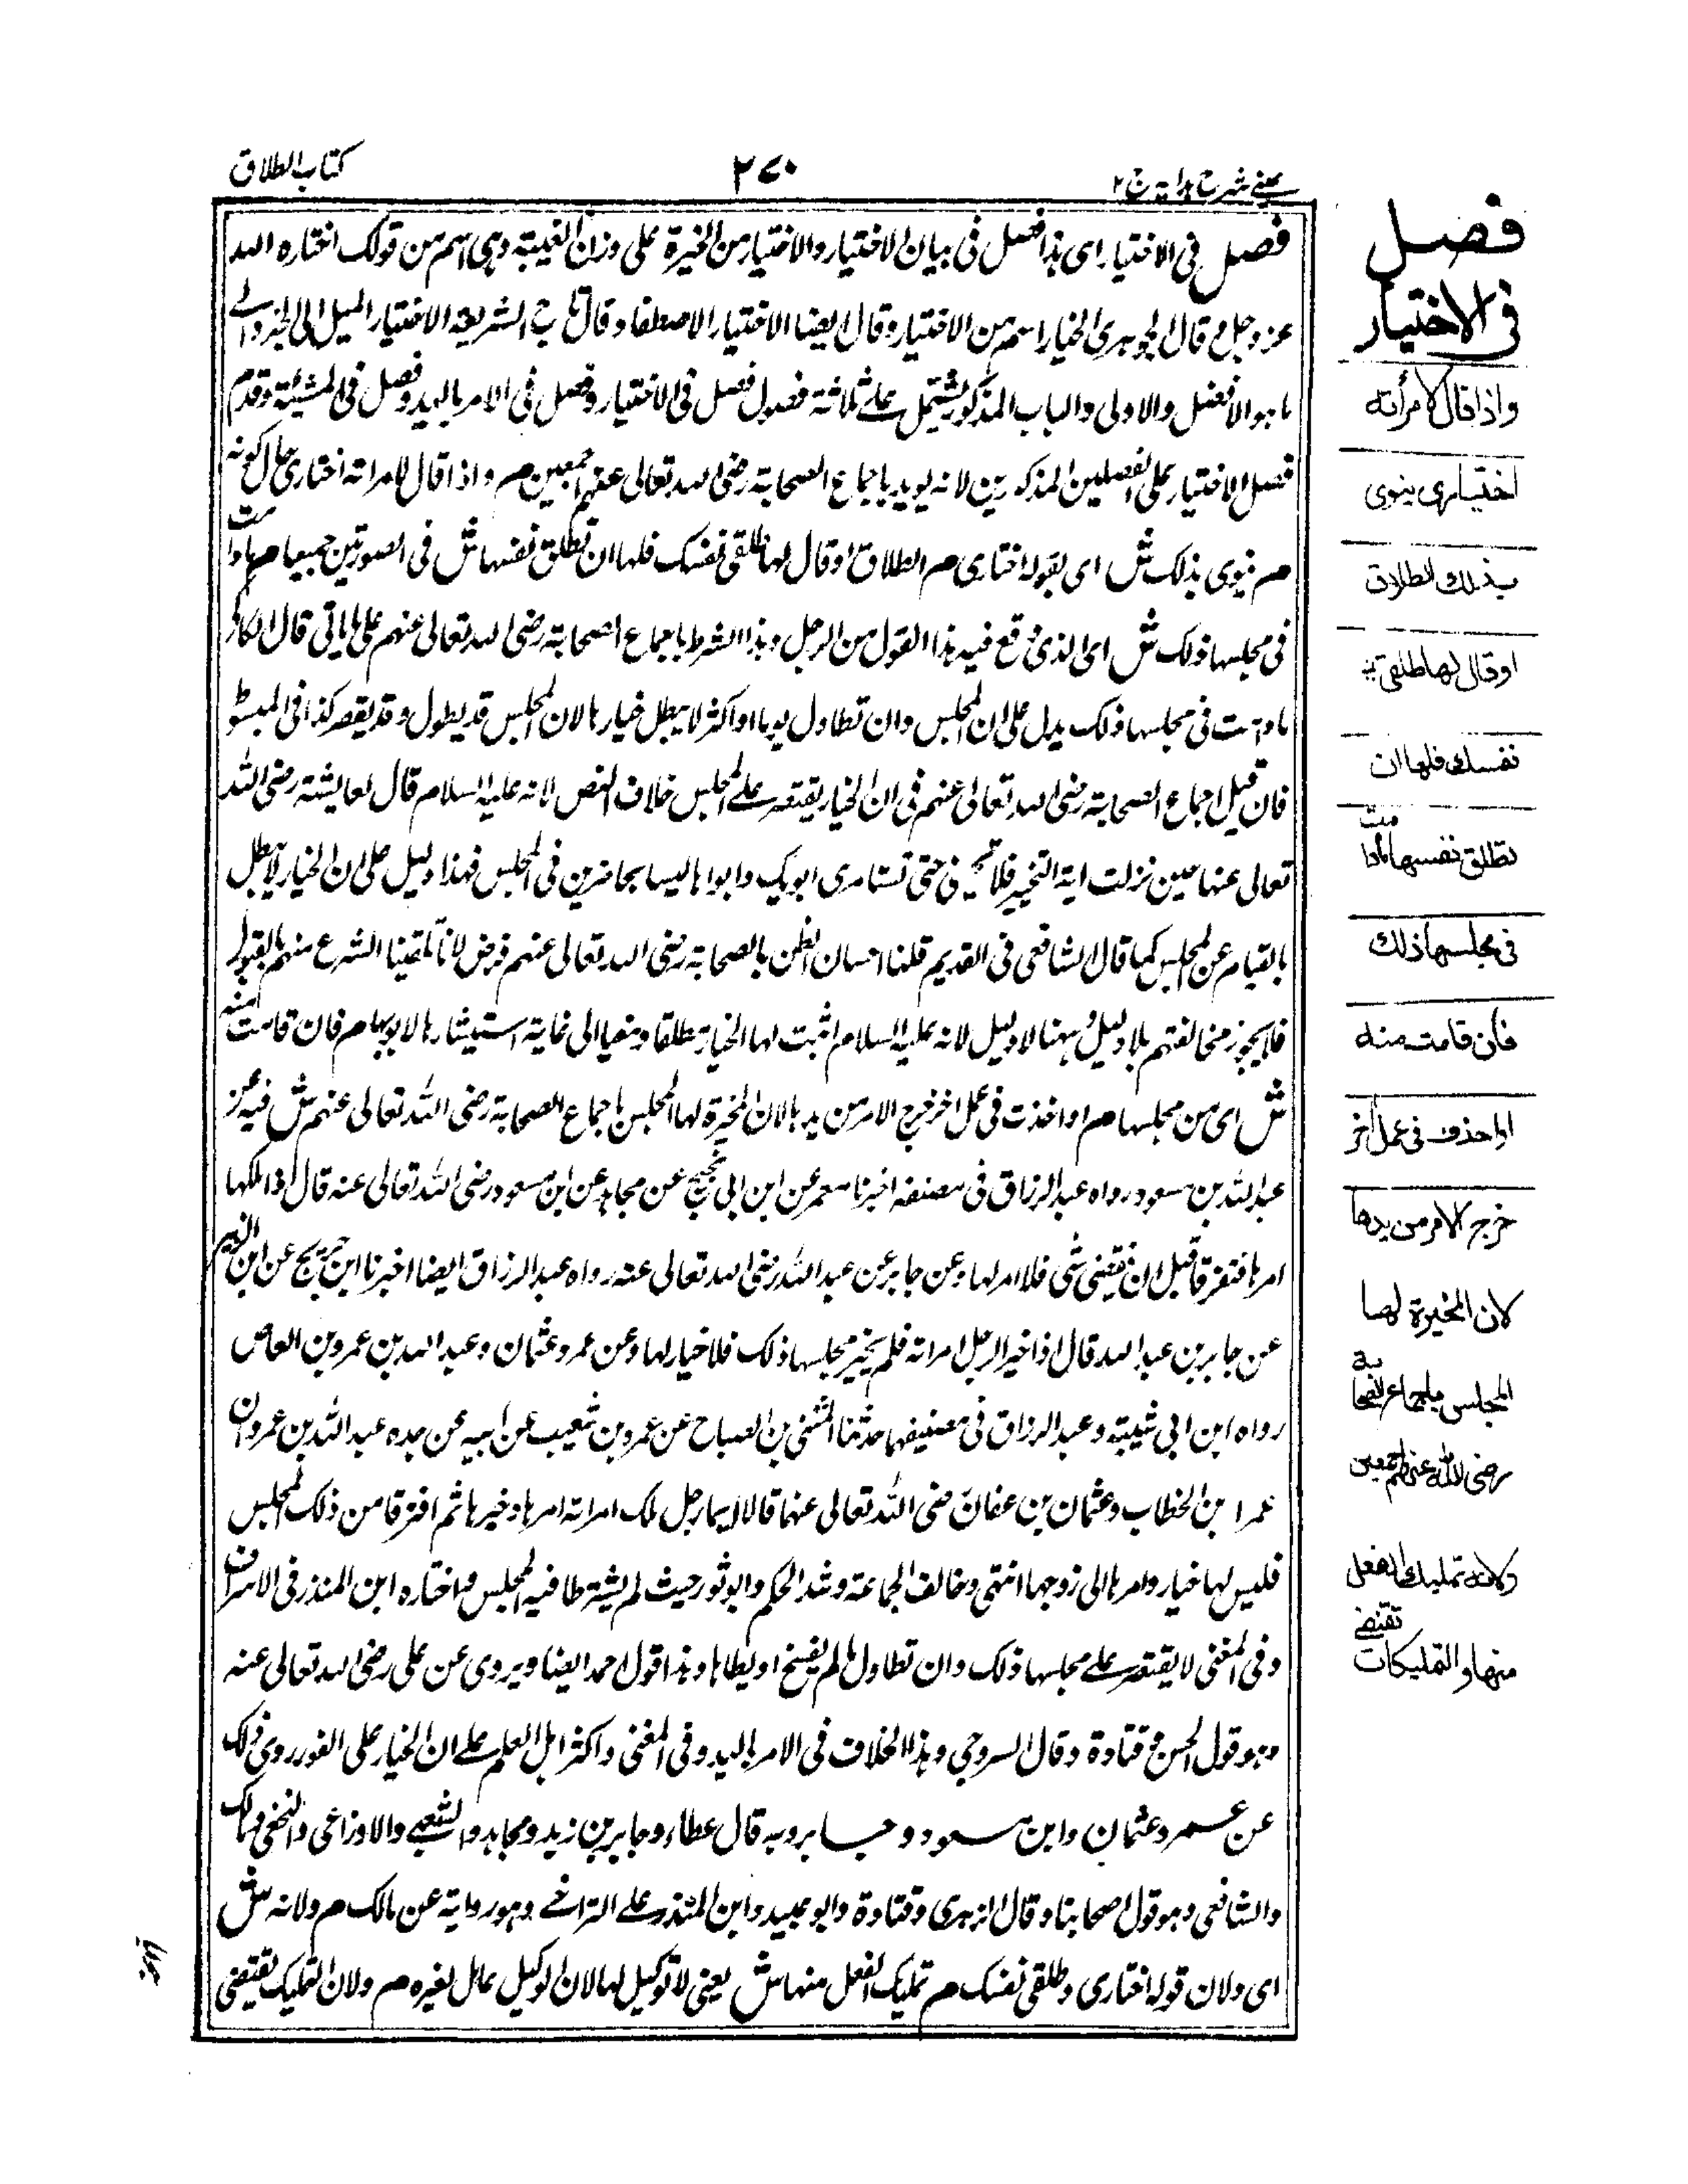 عيني شرح هداية ج ٢
٢٧٠
كتاب الطلاق
فصل في الاختيار اى هذا فصل فى بيان الاختيار والاختيار من الخيرة على وزن الغيبة وهي اسم من قولك اختاره الله
عز وجل م قال الجوهري الخيار اسم من الاختيار وقال ايضا الاختيار الاصطفاء وقال تاج الشريعة الاختيار الميل الى الخير والى
ما هو الافضل والاولى والباب المذكور يشتمل على ثلاثة فصول فصل في الاختيار وفصل فى الامر باليد وفصل فى المشيئة وقدم
فصل الاختيار على الفصلين المذكورين لانه يويد باجماع الصحابة رضى الله تعالى عنهم اجمعين م واذا قال لامراته اختارى حال كونه
م ينوى بذلك ش اى بقوله اختارى م الطلاق او قال لها طلقى نفسك فلها ان تطلق نفسها ش فى الصورتين جميعا م مادامت
فى مجلسها ذلك ش اى الذى وقع فيه هذا القول من الرجل وهذا الشرط باجماع الصحابة رضى الله تعالى عنهم على ماياتى قال الكاكى
مادامت فى مجلسها ذلك يدل على ان المجلس وان تطاول يوما او اكثر لا يبطل خيارها لان المجلس قد يطول وقد يقصر كذا فى المبسوط
فان قيل اجماع الصحابة رضى الله تعالى عنهم فى ان الخيار يقتصر على المجلس خلاف النص لانه عليه السلام قال لعايشة رضى الله
تعالى عنها حين نزلت اية التخيير فلا تجيبنى حتى تستامرى ابويك وابواها ليسا بحاضرين فى المجلس فهذا دليل على ان الخيار لا يبطل
بالقيام عن المجلس كما قال الشافعى فى القديم قلنا احسان الظن بالصحابة رضى الله تعالى عنهم فرض لانا تلقينا الشرع منهم بالقبول
فلا يجوز مخالفتهم بلا دليل وههنا لا دليل لانه عليه السلام اثبت لها الخيار مطلقا ومغيا الى غاية استيشارها لابويها م فان قامت منه
ش اى من مجلسها م او اخذت فى عمل اخر خرج الامر من يدها لان المخيرة لها المجلس باجماع الصحابة رضى الله تعالى عنهم ش فيه عن
عبد الله بن مسعود رواه عبد الرزاق فى مصنفه اخبرنا معمر عن ابن ابى نجيح عن مجاهد عن ابن مسعود رضى الله تعالى عنه قال اذا ملكها
امرها فتفرقا قبل ان تقضى شى فلا امر لها وعن جابر عن عبد الله رضى الله تعالى عنه رواه عبد الرزاق ايضا اخبرنا ابن جريج عن ابى الزبير
عن جابر بن عبد الله قال اذا خير الرجل امراته فلم تختر مجلسها ذلك فلا خيار لها وعن عمر وعثمان وعبد الله بن عمرو بن العاص
رواه ابن ابى شيبة وعبد الرزاق فى مصنفيهما حدثنا المثنى بن الصباح عن عمرو بن شعيب عن ابيه عن جده عبد الله بن عمر وان
عمر ابن الخطاب وعثمان بن عفان رضى الله تعالى عنهما قالا ايما رجل ملك امراته امرها وخيرها ثم افترقا من ذلك المجلس
فليس لها خيار وامرها الى زوجها انتهى وخالف الجماعة وشذ الحكم وابو ثور حيث لم يشترطا فيه المجلس واختاره ابن المنذر فى الاشراف
وفى المغنى لا يقتصر على مجلسها ذلك وان تطاول مالم يفسخ او يطاها وهذا قول احمد ايضا ويروى عن على رضى الله تعالى عنه
وهو قول الحسن وقتادة وقال السروجي وهذا الخلاف فى الامر باليد وفى المغنى واكثر اهل العلم على ان الخيار على الفور روى ذلك
عن عمر وعثمان وابن مسعود وجابر وبه قال عطاء وجابر بن زيد ومجاهد والشعبى والاوزاعى والنخعى ومالك
والشافعى وهو قول اصحابنا وقال الزهرى وقتادة وابو عبيد وابن المنذر على التراخى وهو رواية عن مالك م ولانه ش
اى ولان قوله اختارى وطلقى نفسك م تمليك الفعل منها ش يعنى لا توكيل لها لان الوكيل عامل لغيره م ولان التمليك يقتضى
فصل
فى الاختيار
واذا قال لامرأته
اختارى ينوى
بذلك الطلاق
اوقال لها طلقى
نفسك فلها ان
تطلق نفسها مادامت
فى مجلسها ذلك
فان قامت منه
او اخذت فى عمل اخر
خرج الامر من يدها
لان المخيرة لها
المجلس باجماع الصحابة
رضى الله عنهم اجمعين
ولانه تمليك الفعل
منها والتمليكات تقتضى